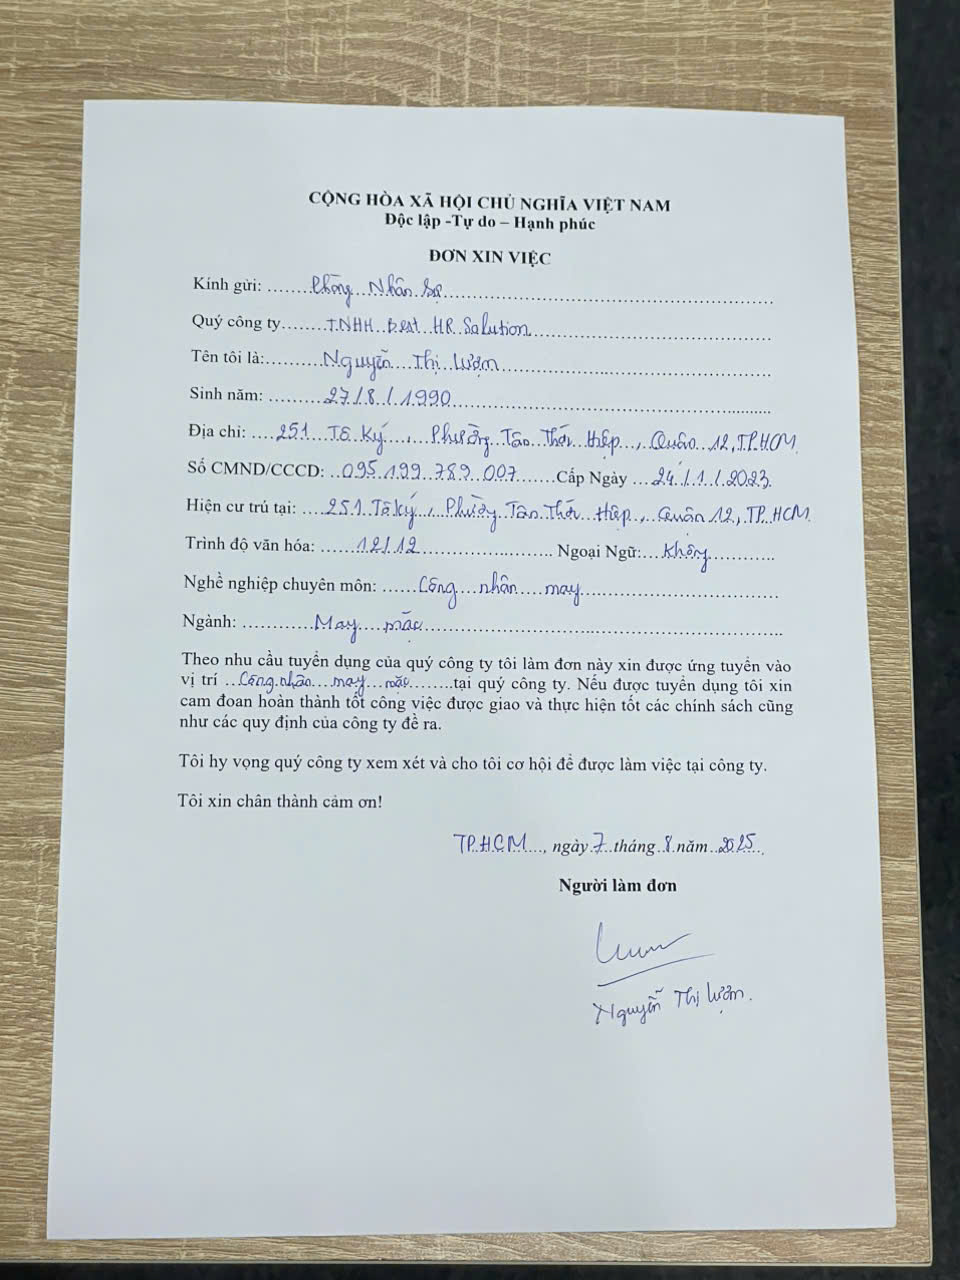 CỘNG HÒA XÃ HỘI CHỦ NGHĨA VIỆT NAM
Độc lập -Tự do – Hạnh phúc
ĐƠN XIN VIỆC
Kính gửi: Phòng Nhân Sự
Quý công ty TNHH Best HR Solution
Tên tôi là: Nguyễn Thị Lượm
Sinh năm: 27/8/1990
Địa chỉ: 251 Tô Ký, Phường Tân Thới Hiệp, Quận 12, TP.HCM
Số CMND/CCCD: 095.199.789.007 Cấp Ngày 24/1/2023
Hiện cư trú tại: 251 Tô Ký, Phường Tân Thới Hiệp, Quận 12, TP. HCM
Trình độ văn hóa: 12/12 Ngoại Ngữ: Không
Nghề nghiệp chuyên môn: Công nhân may
Ngành: May mặc
Theo nhu cầu tuyển dụng của quý công ty tôi làm đơn này xin được ứng tuyển vào
vị trí Công nhân may mặc tại quý công ty. Nếu được tuyển dụng tôi xin
cam đoan hoàn thành tốt công việc được giao và thực hiện tốt các chính sách cũng
như các quy định của công ty đề ra.
Tôi hy vọng quý công ty xem xét và cho tôi cơ hội để được làm việc tại công ty.
Tôi xin chân thành cảm ơn!
TP.HCM, ngày 7 tháng 8 năm 2025
Người làm đơn
Nguyễn Thị Lượm.